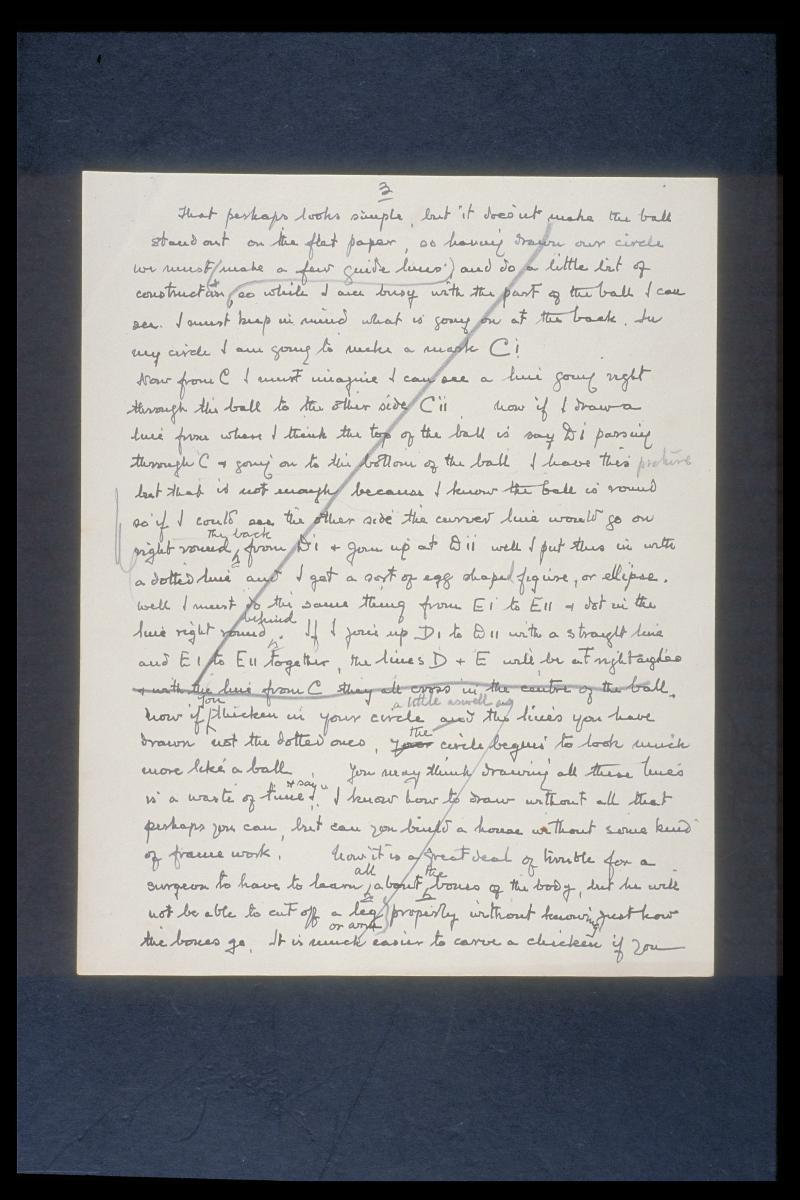 3
That perhaps looks simple, but it doesn't make the ball
stand out on the flat paper, so having drawn our circle
we must (make a few guide lines) and do a little bit of
construction, so while I am busy with the part of the ball I can
see. I must keep in mind what is going on at the back. In
my circle I am going to make a mark Ci
Now from C I must imagine I can see a line going right
through the ball to the other side Cii now if I draw a
line from where I think the top of the ball is say Di passing
through C + going on to the bottom of the ball I have this picture
but that is not enough because I know the ball is round
so if I could see the other side the curved line would go on
the back
right round from Di + join up at Dii well I put this in with
a dotted line and I get a sort of egg shaped figure, or ellipse.
well I must do the same thing from Ei to Eii + dot in the
behind
line right round. If I join up Di to Dii with a straight line
and Ei to Eii together, the lines D + E will be at right angles
+ with the line from C they all cross in the centre of the ball.
you a little as well as
Now if thicken in your circle and the lines you have
the
drawn not the dotted ones, your circle begins to look much
more like a ball. You may think drawing all these lines
+ say
is a waste of time "I know how to draw without all that
perhaps you can, but can you build a house without some kind
of frame work. Now it is a great deal of trouble for a
all the
surgeon to have to learn about bones of the body, but he will
not be able to cut off a leg properly without knowing just how
or arm
the bones go. It is much easier to carve a chicken if you